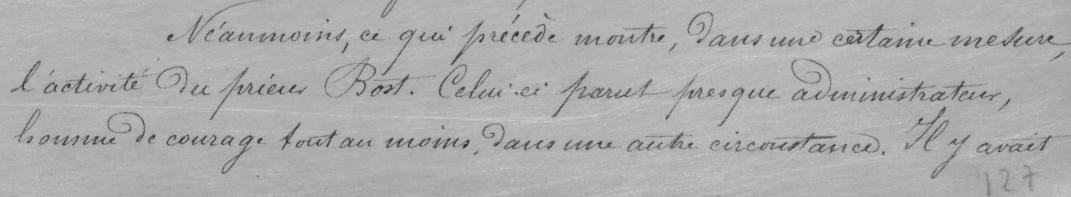 Néanmoins, ce qui précède montre, dans une certaine mesure,
l'activité du prieur Bost. Celui-ci parut presque administrateur,
homme de courage tout au moins, dans une autre circonstance. Il y avait
127